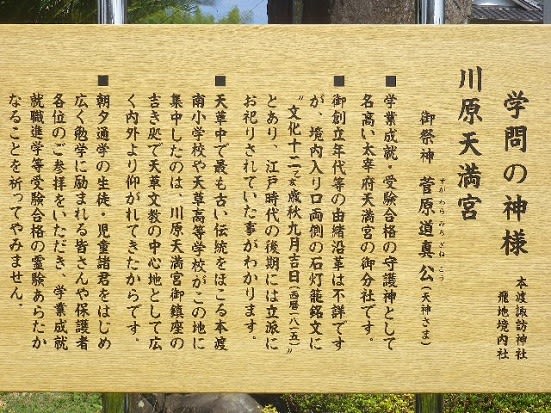 学問の神様
本渡諏訪神社
飛地境内社
川原天満宮
御祭神 菅原道真公(天神さま)
すがわらみちざねこう
■学業成就・受験合格の守護神として
名高い太宰府天満宮の御分社です。
■御創立年代等の由緒沿革は不詳です
が、境内入り口両側の石灯籠銘文に
〝文化十二乙亥歳秋九月吉日(西暦一八一五)〟
とあり、江戸時代の後期には立派に
お祀りされていた事がわかります。
■天草中で最も古い伝統をほこる本渡
南小学校や天草高等学校がこの地に
集中したのは、川原天満宮御鎮座の
吉き処で天草文教の中心地として広
く内外より仰がれてきたからです。
■朝夕通学の生徒・児童諸君をはじめ
広く勉学に励まれる皆さんや保護者
各位のご参拝をいただき、学業成就
就職進学等受験合格の霊験あらたか
なることを祈ってやみません。